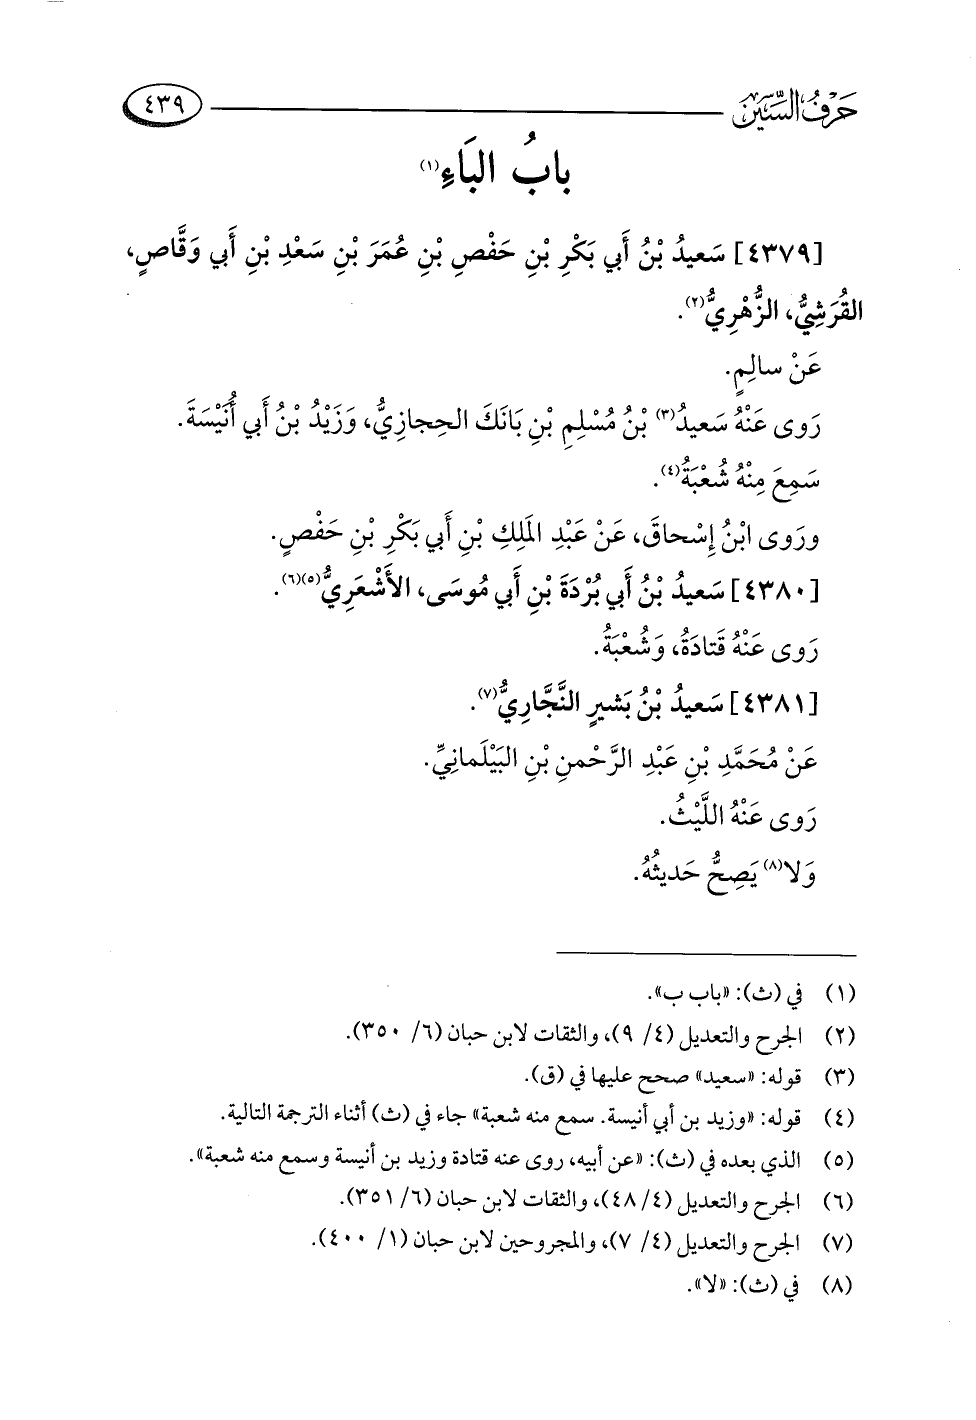 حَرْفُ السِّين
٤٣٩
بابُ البَاءِ(١)
[٤٣٧٩] سَعيدُ بْنُ أَبي بَكْرِ بْنِ حَفْصِ بْنِ عُمَرَ بْنِ سَعْدِ بْنِ أَبي وَقَّاصٍ،
القُرَشِيُّ، الزُّهْرِيُّ(٢).
عَنْ سالِمٍ.
رَوى عَنْهُ سَعيدُ(٣) بْنُ مُسْلِمِ بْنِ بَانَكَ الحِجازِيُّ، وَزَيْدُ بْنُ أَبي أُنَيْسَةَ.
سَمِعَ مِنْهُ شُعْبَةُ(٤).
ورَوى ابْنُ إِسْحاقَ، عَنْ عَبْدِ المَلِكِ بْنِ أَبي بَكْرِ بْنِ حَفْصٍ.
[٤٣٨٠] سَعيدُ بْنُ أَبي بُرْدَةَ بْنِ أَبي مُوسَى، الأَشْعَرِيُّ(٥)(٦).
رَوى عَنْهُ قَتادَةُ، وَشُعْبَةُ.
[٤٣٨١] سَعيدُ بْنُ بَشيرٍ النَّجَّارِيُّ(٧).
عَنْ مُحَمَّدِ بْنِ عَبْدِ الرَّحْمنِ بْنِ البَيْلَمانِيِّ.
رَوى عَنْهُ اللَّيْثُ.
وَلا(٨) يَصِحُّ حَديثُهُ.
(١) في (ث): «باب ب».
(٢) الجرح والتعديل (٤/ ٩)، والثقات لابن حبان (٦/ ٣٥٠).
(٣) قوله: «سعيد» صحح عليها في (ق).
(٤) قوله: «وزيد بن أبي أنيسة. سمع منه شعبة» جاء في (ث) أثناء الترجمة التالية.
(٥) الذي بعده في (ث): «عن أبيه، روى عنه قتادة وزيد بن أنيسة وسمع منه شعبة».
(٦) الجرح والتعديل (٤/ ٤٨)، والثقات لابن حبان (٦/ ٣٥١).
(٧) الجرح والتعديل (٤/ ٧)، والمجروحين لابن حبان (١/ ٤٠٠).
(٨) في (ث): «لا».